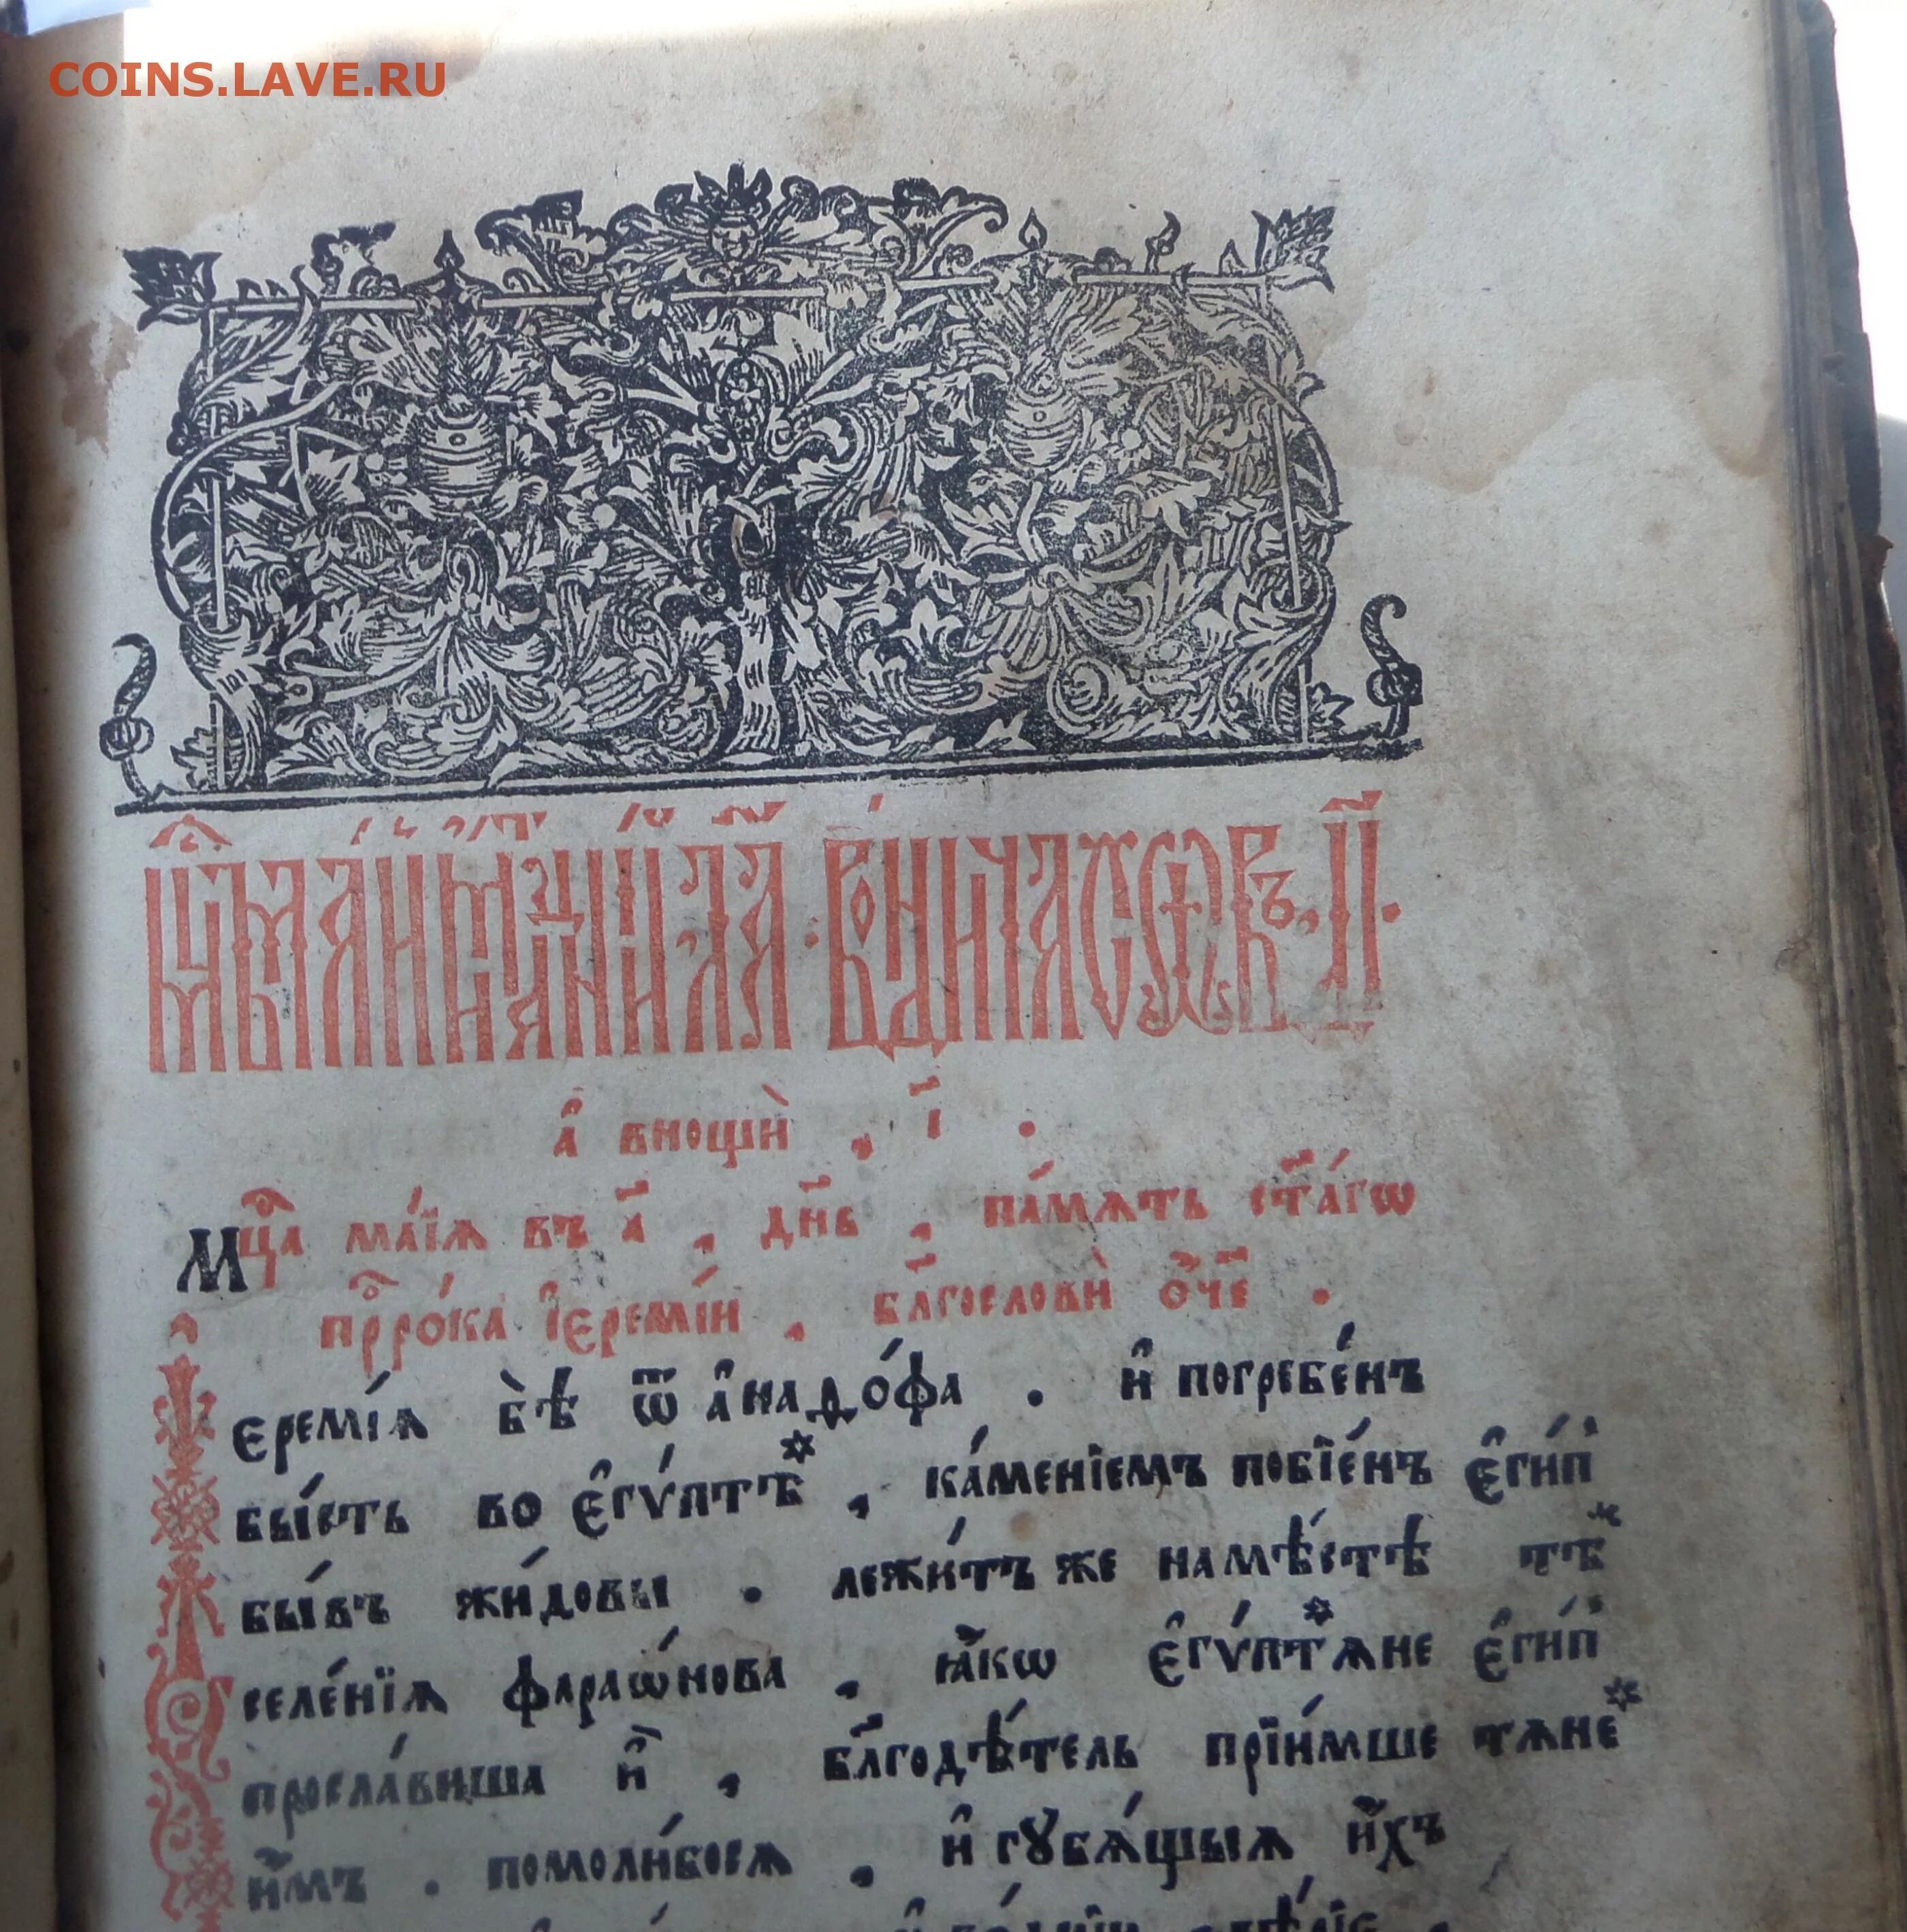 COINS.LAVE.RU
а҆ вношѝ , і҃ .
Мцⷭ҇а ма́їѧ въ а҃ , дн҃ь , па́мѧть ст҃а́гѡ
прⷪ҇ро́ка і҆еремі́и , бл҃гословѝ ѻ҆́ч҃е .
І҆еремі́ѧ бѣ̀ ѿ а҆надо́фа . и҆ погребе́нъ
бы́сть во є҆гѵ́птѣ* , ка́менїемъ побїе́нъ є҆ги́п
бы́въ жи́довы . лежи́тъ же на мѣ́стѣ тѣ*
селе́нїѧ фараѡ́нова , ꙗ҆́кѡ є҆гѵ́птѧне* є҆ги́п
просла́виша и҆̀ , бл҃годѣ́тель прїи́мше тѧне*
и҆̀мъ . помоли́босѧ , и҆ гꙋбѧ́щыѧ и҆̀хъ